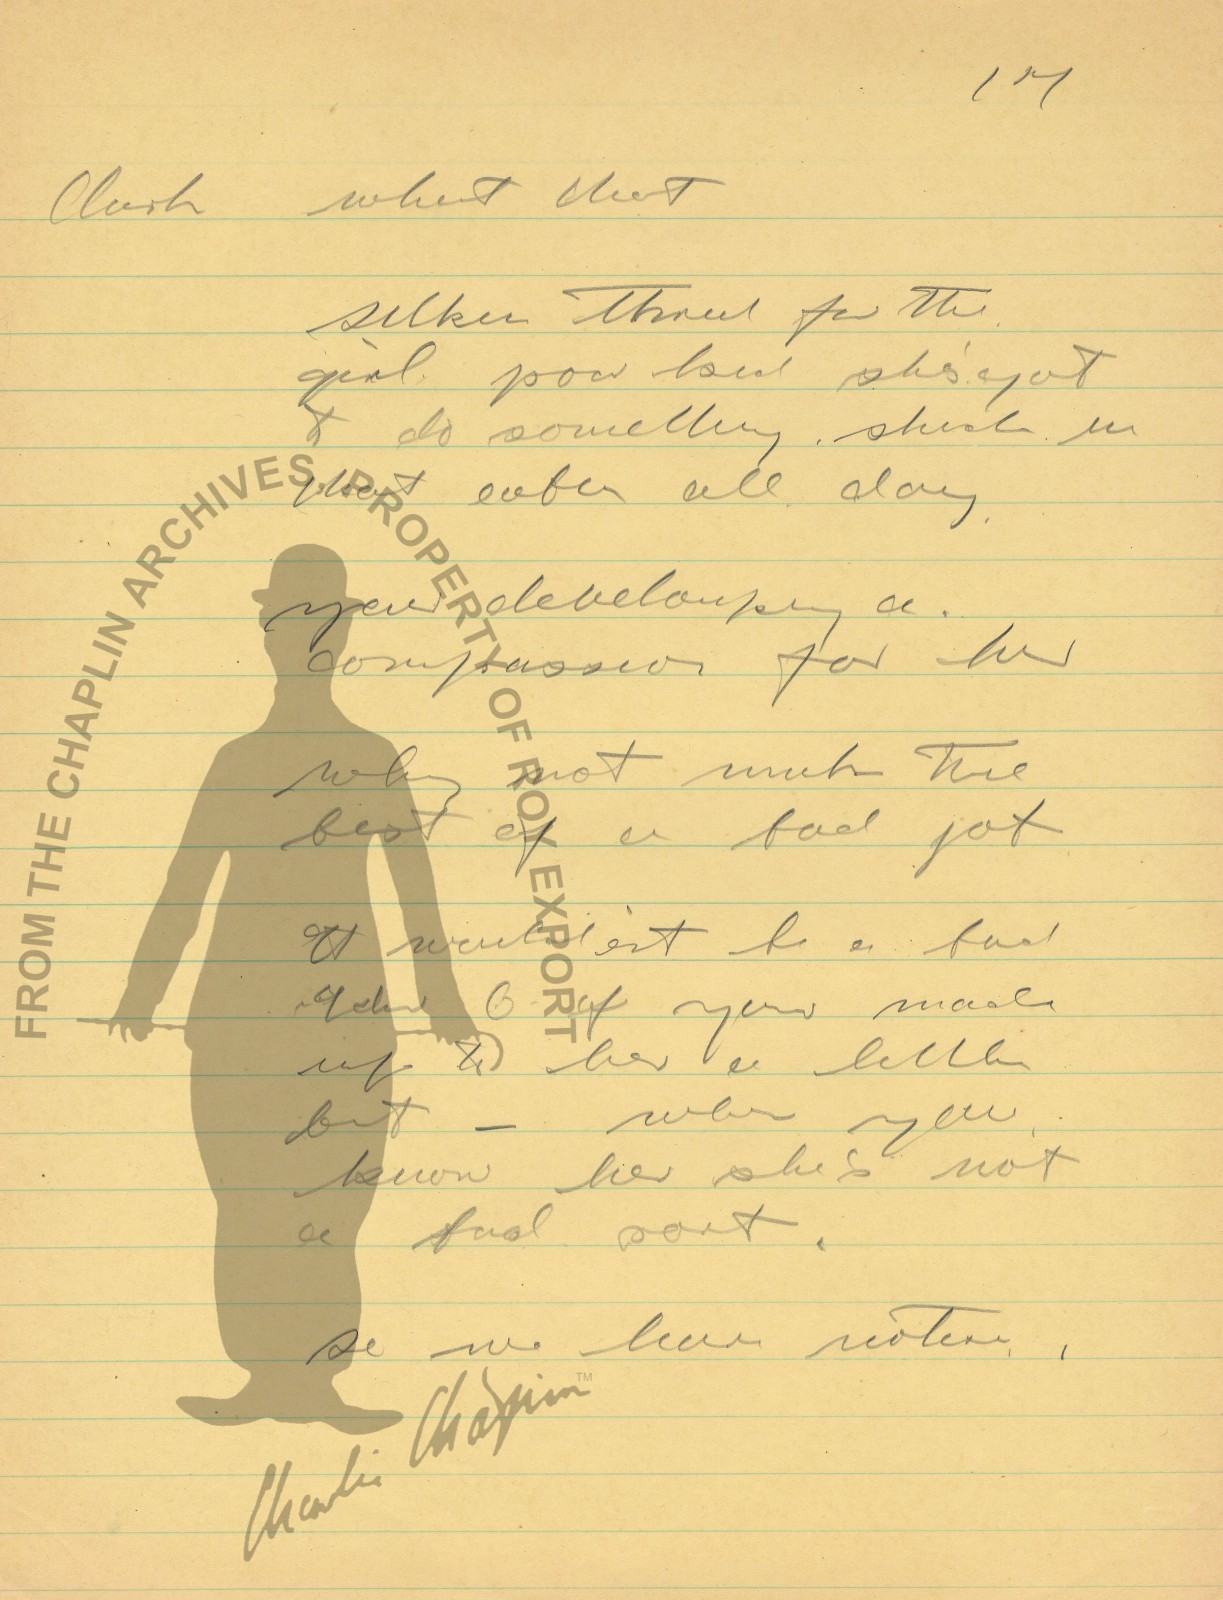 17
Clark what that
silken thread for the
girl poor kid she's got
to do something. stuck in
that cabin all day.
your developing a.
compassion for her
why not make the
best of a bad job
It would'ent be a bad
Idea if you made
up to her a little
bit — when you
know her she's not
a bad sort.
so we have noticed.
FROM THE CHAPLIN ARCHIVES. PROPERTY OF ROY EXPORT
Charlie Chaplin™